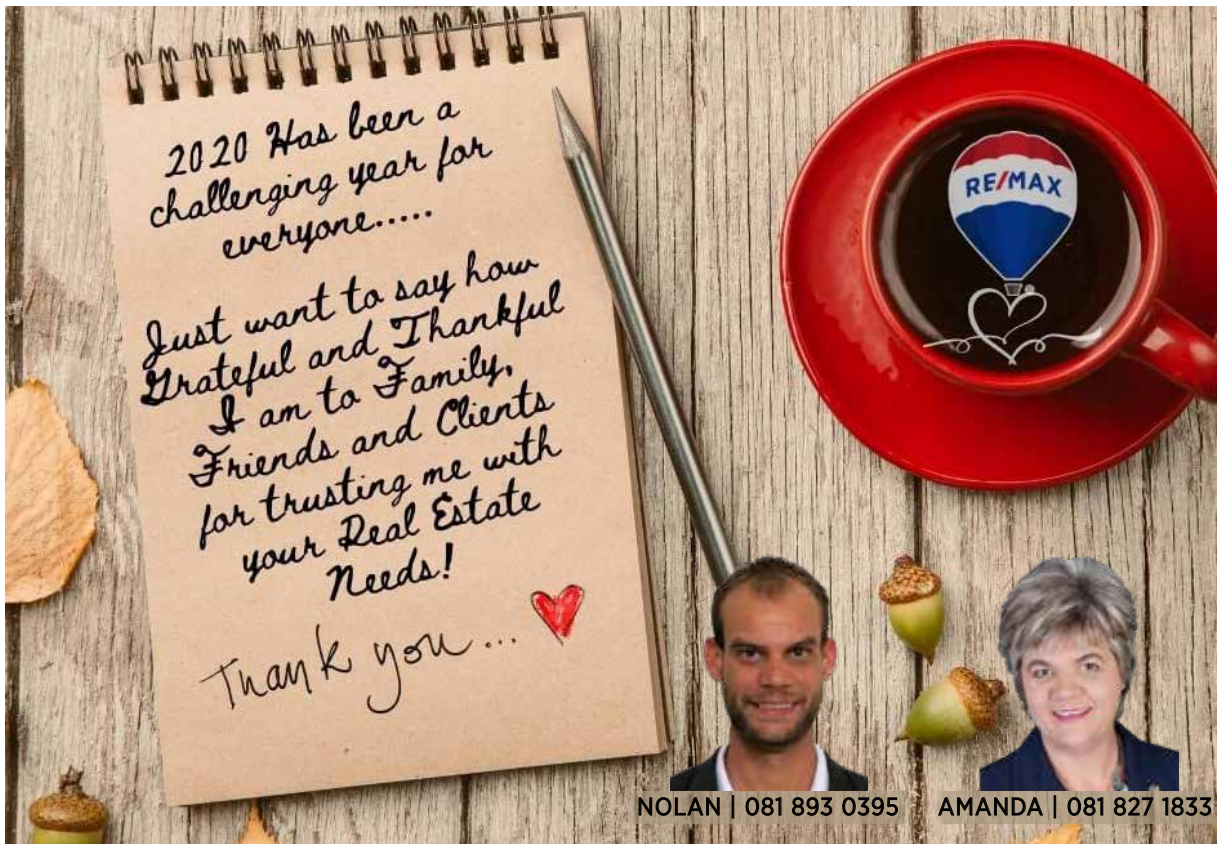 2020 Has been a
challenging year for
everyone.....
Just want to say how
Grateful and Thankful
I am to Family,
Friends and Clients
for trusting me with
your Real Estate
Needs!
Thank you...
RE/MAX
NOLAN | 081 893 0395
AMANDA | 081 827 1833